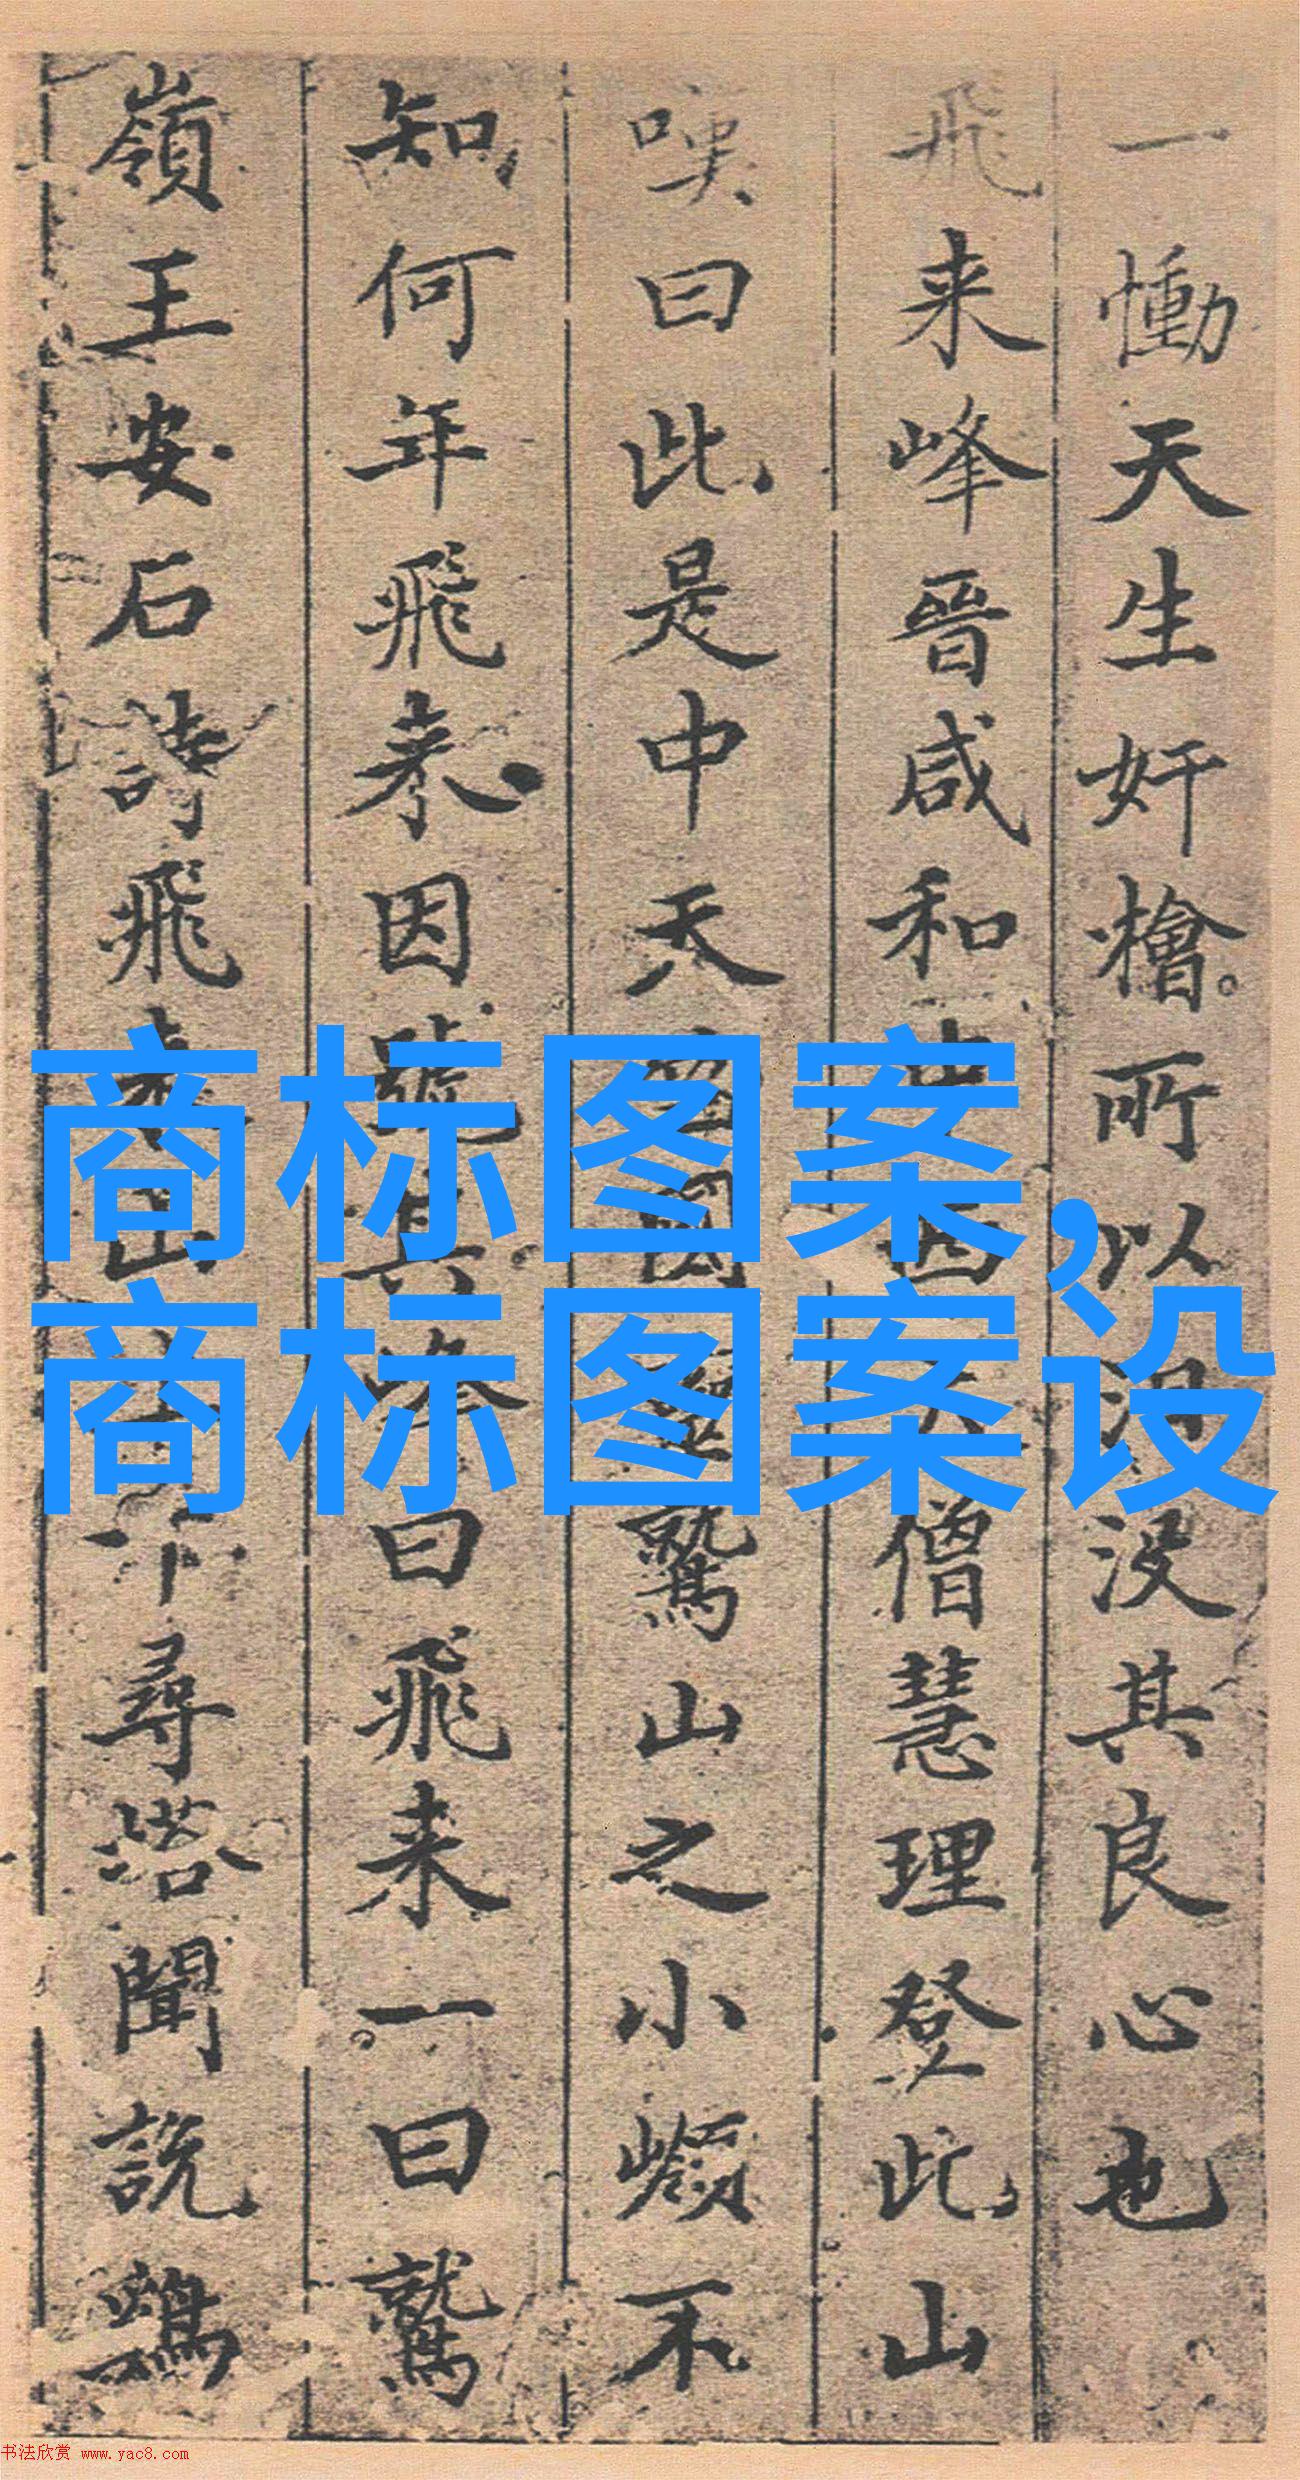 一慟天生奸檜所以没其良心也
飛来峰晉咸和僧慧理登此山
嘆曰此是中天國鷲山之小嶺不
知何年飛来因號其峰曰飛来一曰鷲
嶺王安石詩飛来山千尋塔聞說鷄
商标图案,
商标图案设
书法欣赏 www.yac8.com